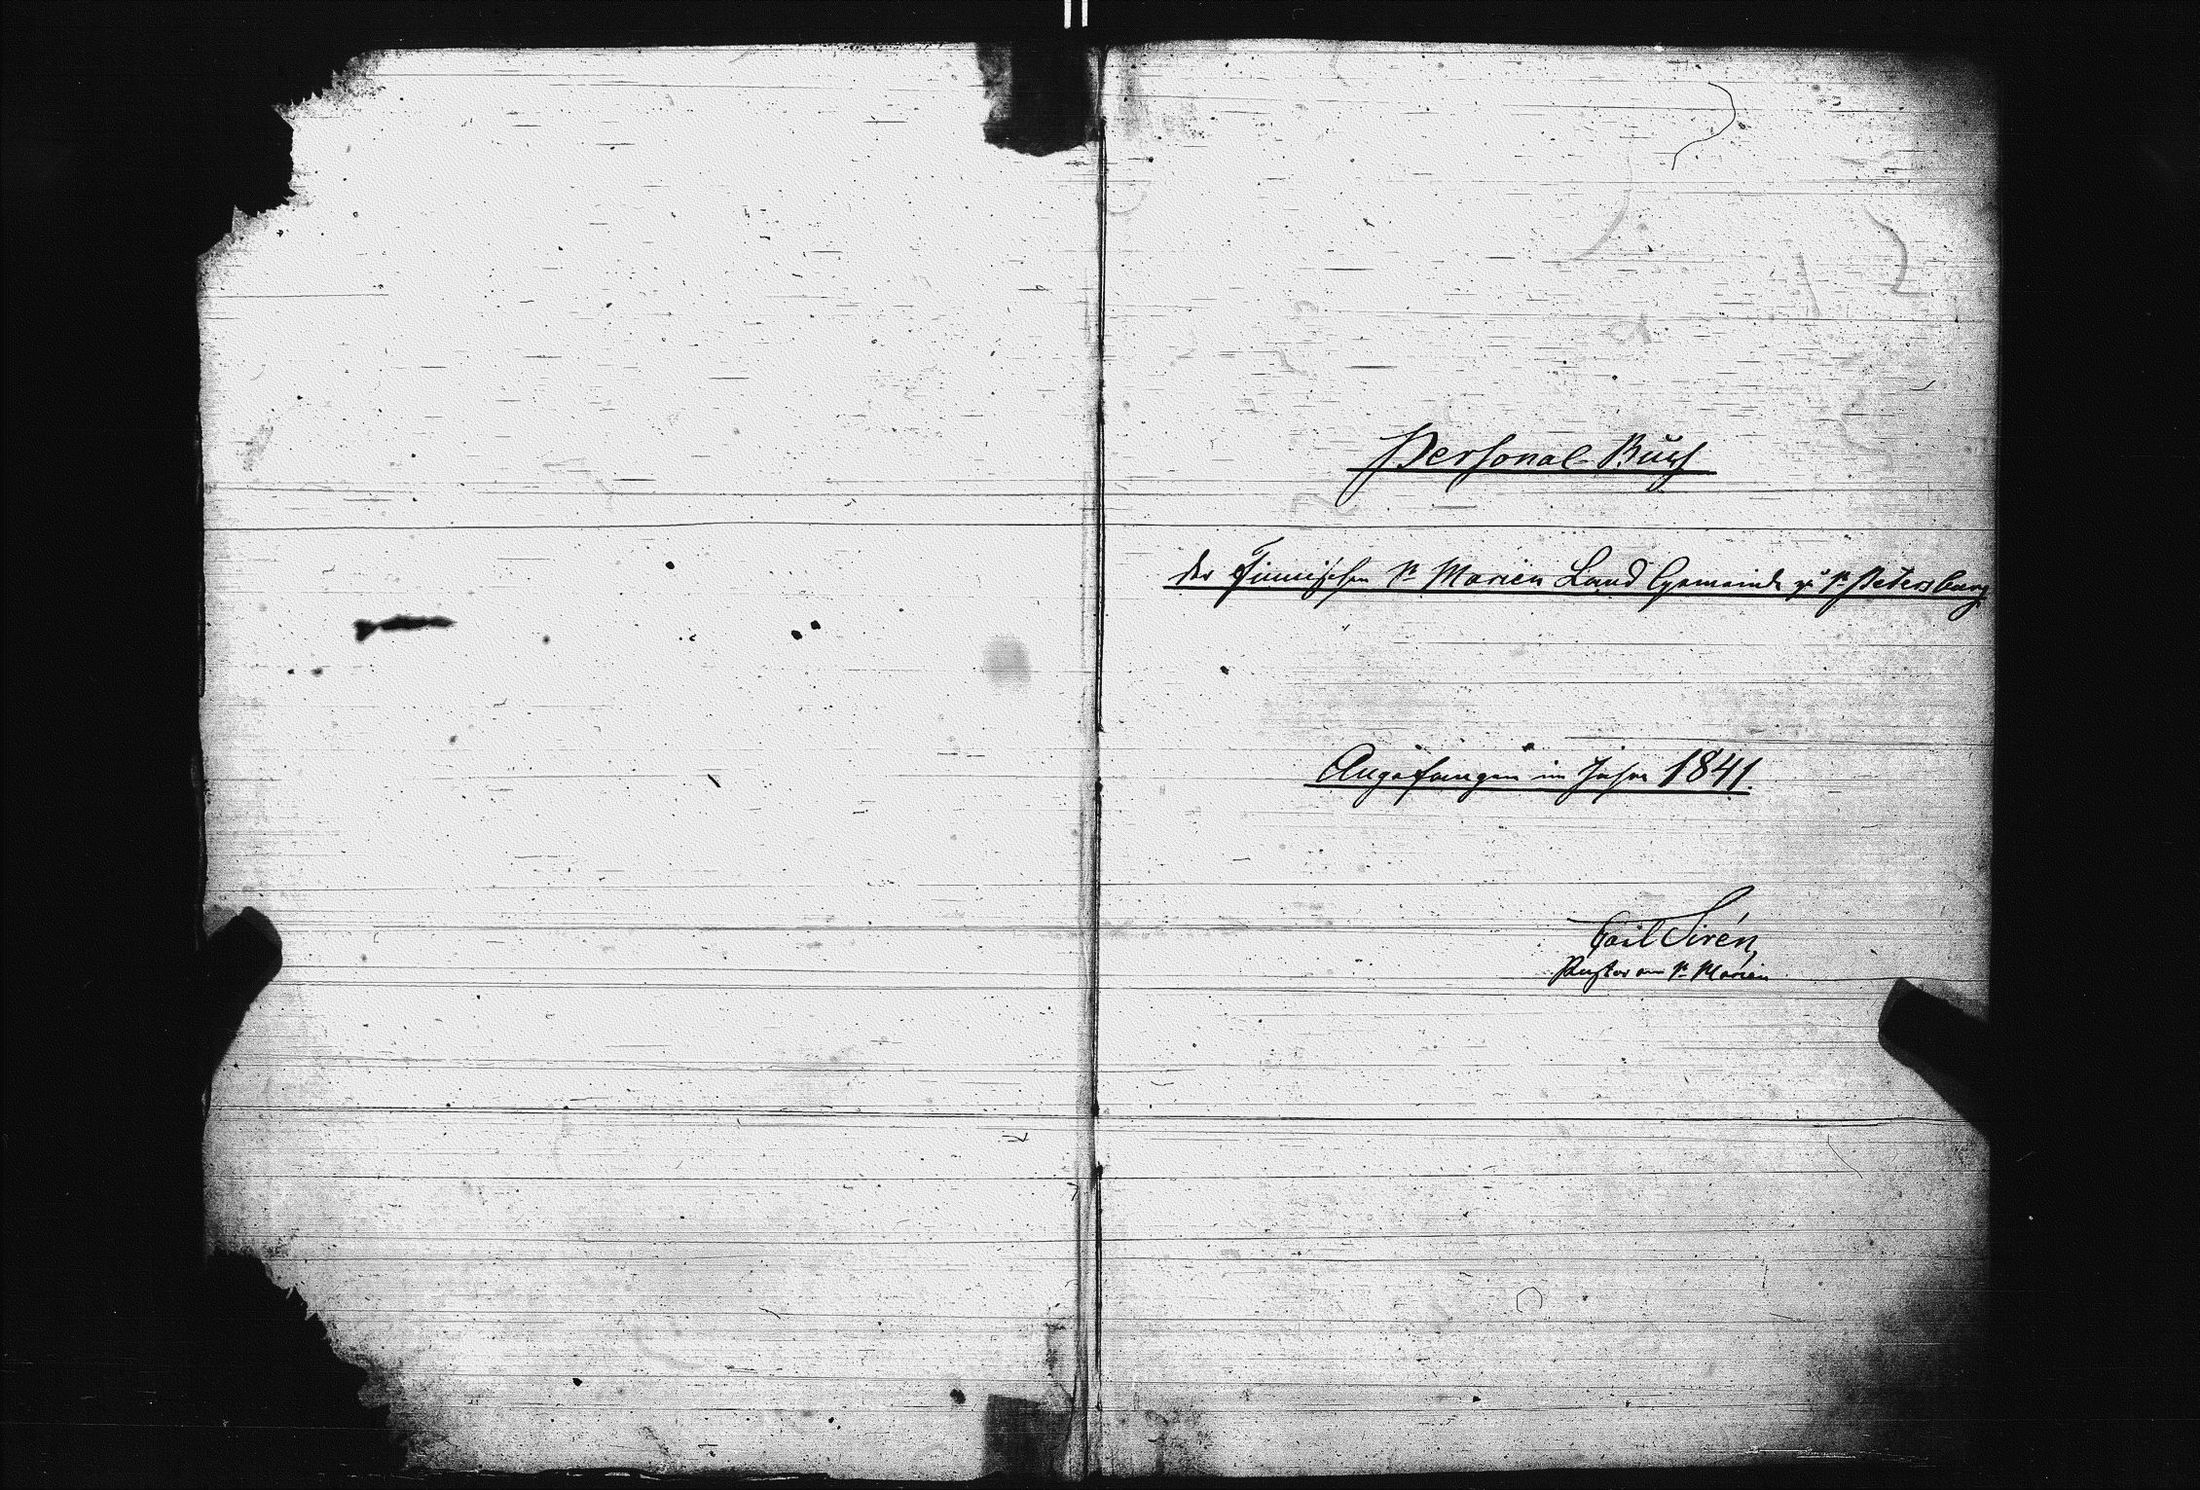 Personal-Buch
der Finnischen St Marien Land Gemeinde zu St Petersburg
Angefangen im Jahre 1841.
Sirén,
Pastor an St Marien